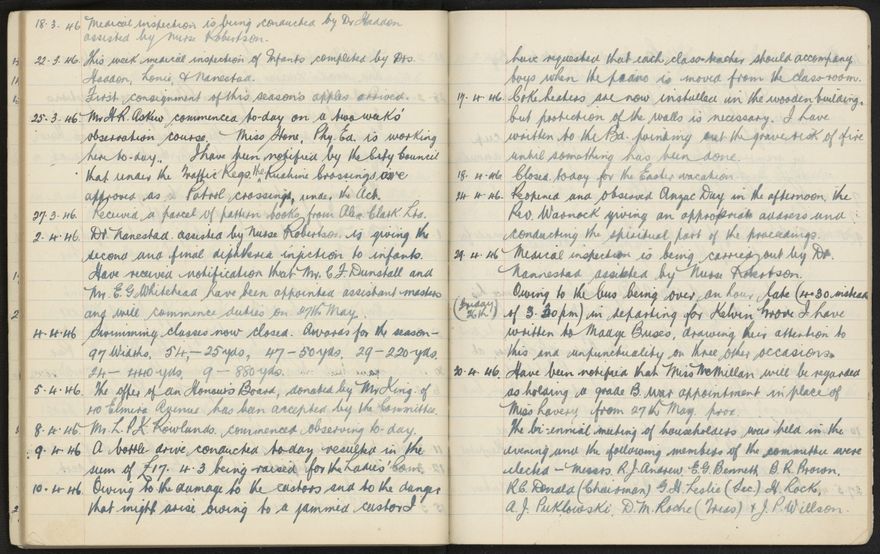 18.3.46 Medical inspection is being conducted by Dr Haddon
assisted by Nurse Robertson.
22.3.46. This week medical inspection of Infants completed by Drs.
Haddon, & Nanestad.
First consignment of this season's apples arrived.
25.3.46 Mr H.R. Askew commenced to-day on a two week's
observation course. - Miss Hone, Phy Ed. is working
here to-day. I have been notified by the City Council
that under the Traffic Regs. the crossings are
approved as Patrol crossings, under the Act.
27.3.46. Received a parcel of pattern books from Alex Clark Ltd.
2.4.46. Dr Nanestad assisted by Nurse Robertson is giving the
second and final diphtheria injection to infants.
Have received notification that Mr. C.J. Dunstall and
Mr. E.G. Whitehead have been appointed assistant masters
and will commence duties on 27th May.
4.4.46 Swimming classes now closed. Awards for the season -
97 Widths, 54, - 25 yds, 47 - 50 yds. 29 - 220 yds.
24 - 440 yds, 9 - 880 yds.
5.4.46. The offer of an Honours Board, donated by Mr King of
40 Elmira Avenue has been accepted by the Committee.
8.4.46 Mr. L.P.K. Rowlands. commenced observing to-day.
9.4.46 A bottle drive conducted to-day resulted in the
sum of £17. 4. 3 being raised for the Ladies' Com.
10.4.46. Owing to the damage to the castors and to the danger
that might arise owing to a jammed castor I
have requested that each class-teacher should accompany
boys when the piano is moved from the class-room.
17.4.46 Coke heaters are now installed in the wooden building,
but protection of the walls is necessary. I have
written to the Bd. pointing out the grave risk of fire
until something has been done.
18.4.46 Closed today for the Easter vacation.
24.4.46 Reopened and observed Anzac Day in the afternoon, the
Rev. Warnock giving an appropriate address and
conducting the spiritual part of the proceedings.
29.4.46 Medical inspection is being carried out by Dr.
Nannestad assisted by Nurse Robertson.
Owing to the bus being over an hour late (4.30 instead
(Friday 26th) of 3.30 pm) in departing for Kelvin Grove I have
written to Madge Buses, drawing their attention to
this and unpunctuality on three other occasions.
30.4.46. Have been notified that Miss McMillan will be regarded
as holding a grade B. war appointment in place of
Miss from 27th May. prox.
The bi-ennial meeting of householders was held in the
evening and the following members of the committee were
elected - Messrs. R.J. Andrew E.G. Bennett B.R. Brown,
R.C. Donald (Chairman) G.H. Leslie (Sec.) H. Rock,
A.J. Puklowski. D.M. Roche (Treas) & J.P. Willson.